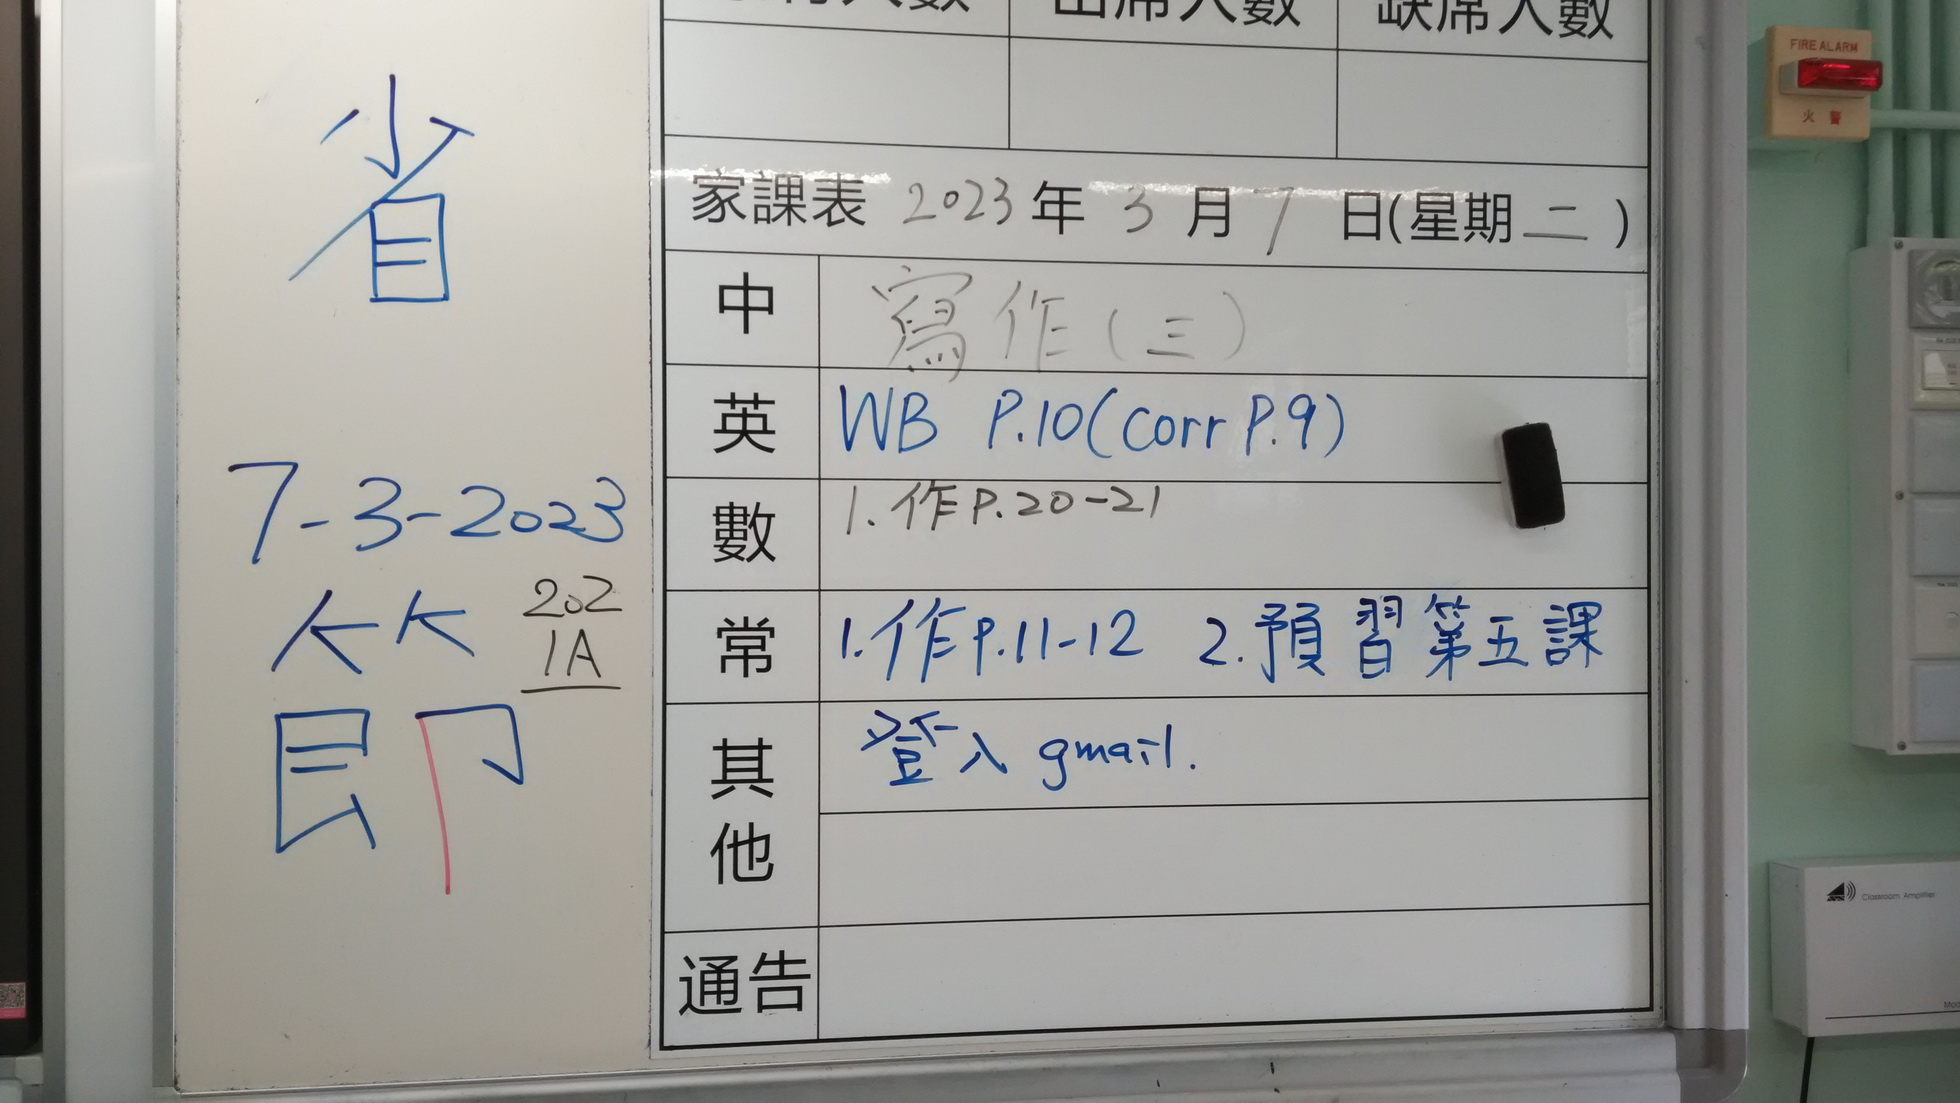 出席人數 缺席人數
家課表 2023 年 3 月 7 日(星期 二 )
中 寫作(三)
英 WB P.10(corr P.9)
數 1.作P.20-21
常 1.作P.11-12 2.預習第五課
其他 登入 gmail.
通告
省
7-3-2023
202
1A
FIRE ALARM
火 警
Classroom Amplifier